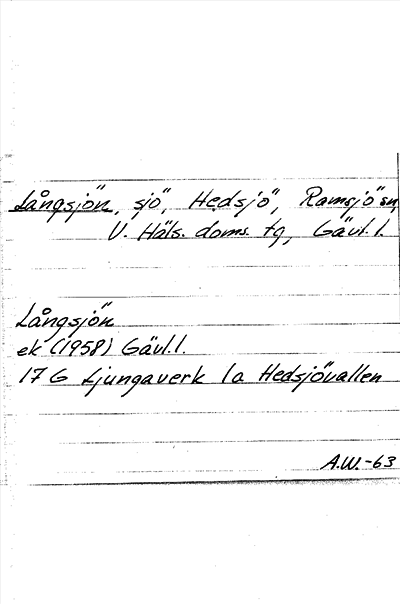 Långsjön, sjö, Hedsjö, Ramsjö sn,
V. Häls. doms. tg, Gävl. l.
Långsjön
ek (1958) Gävl. l.
17 G Ljungaverk 1a Hedsjövallen
A.W.-63